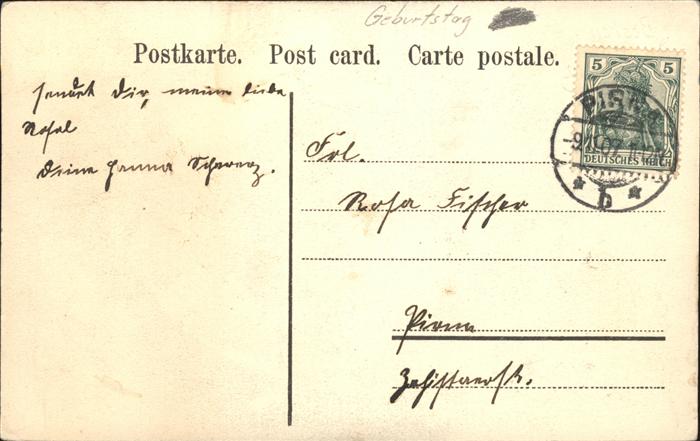 Geburtstag
Postkarte. Post card. Carte postale.
5 5
PIRNA
DEUTSCHES REICH
* b *
sendet Dir, meine liebe
Rosel
Deine Hanna Schwarz.
Frl.
Rosa Fischer
Pirna
Zehistaerstr.